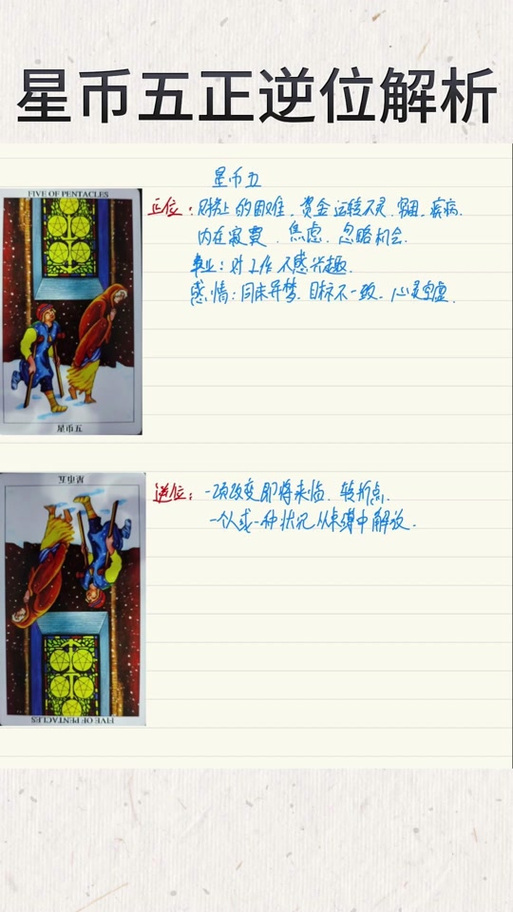 星币五正逆位解析
星币五
FIVE OF PENTACLES
正位：财务上的困难、资金运转不灵、穷困、疾病.
内在寂寞、焦虑、忽略机会.
事业：对工作不感兴趣.
感情：同床异梦、目标不一致、心灵空虚.
星币五
星币五
逆位：一项改变即将来临、转折点、
一个人或一种状况从束缚中解放.
FIVE OF PENTACLES